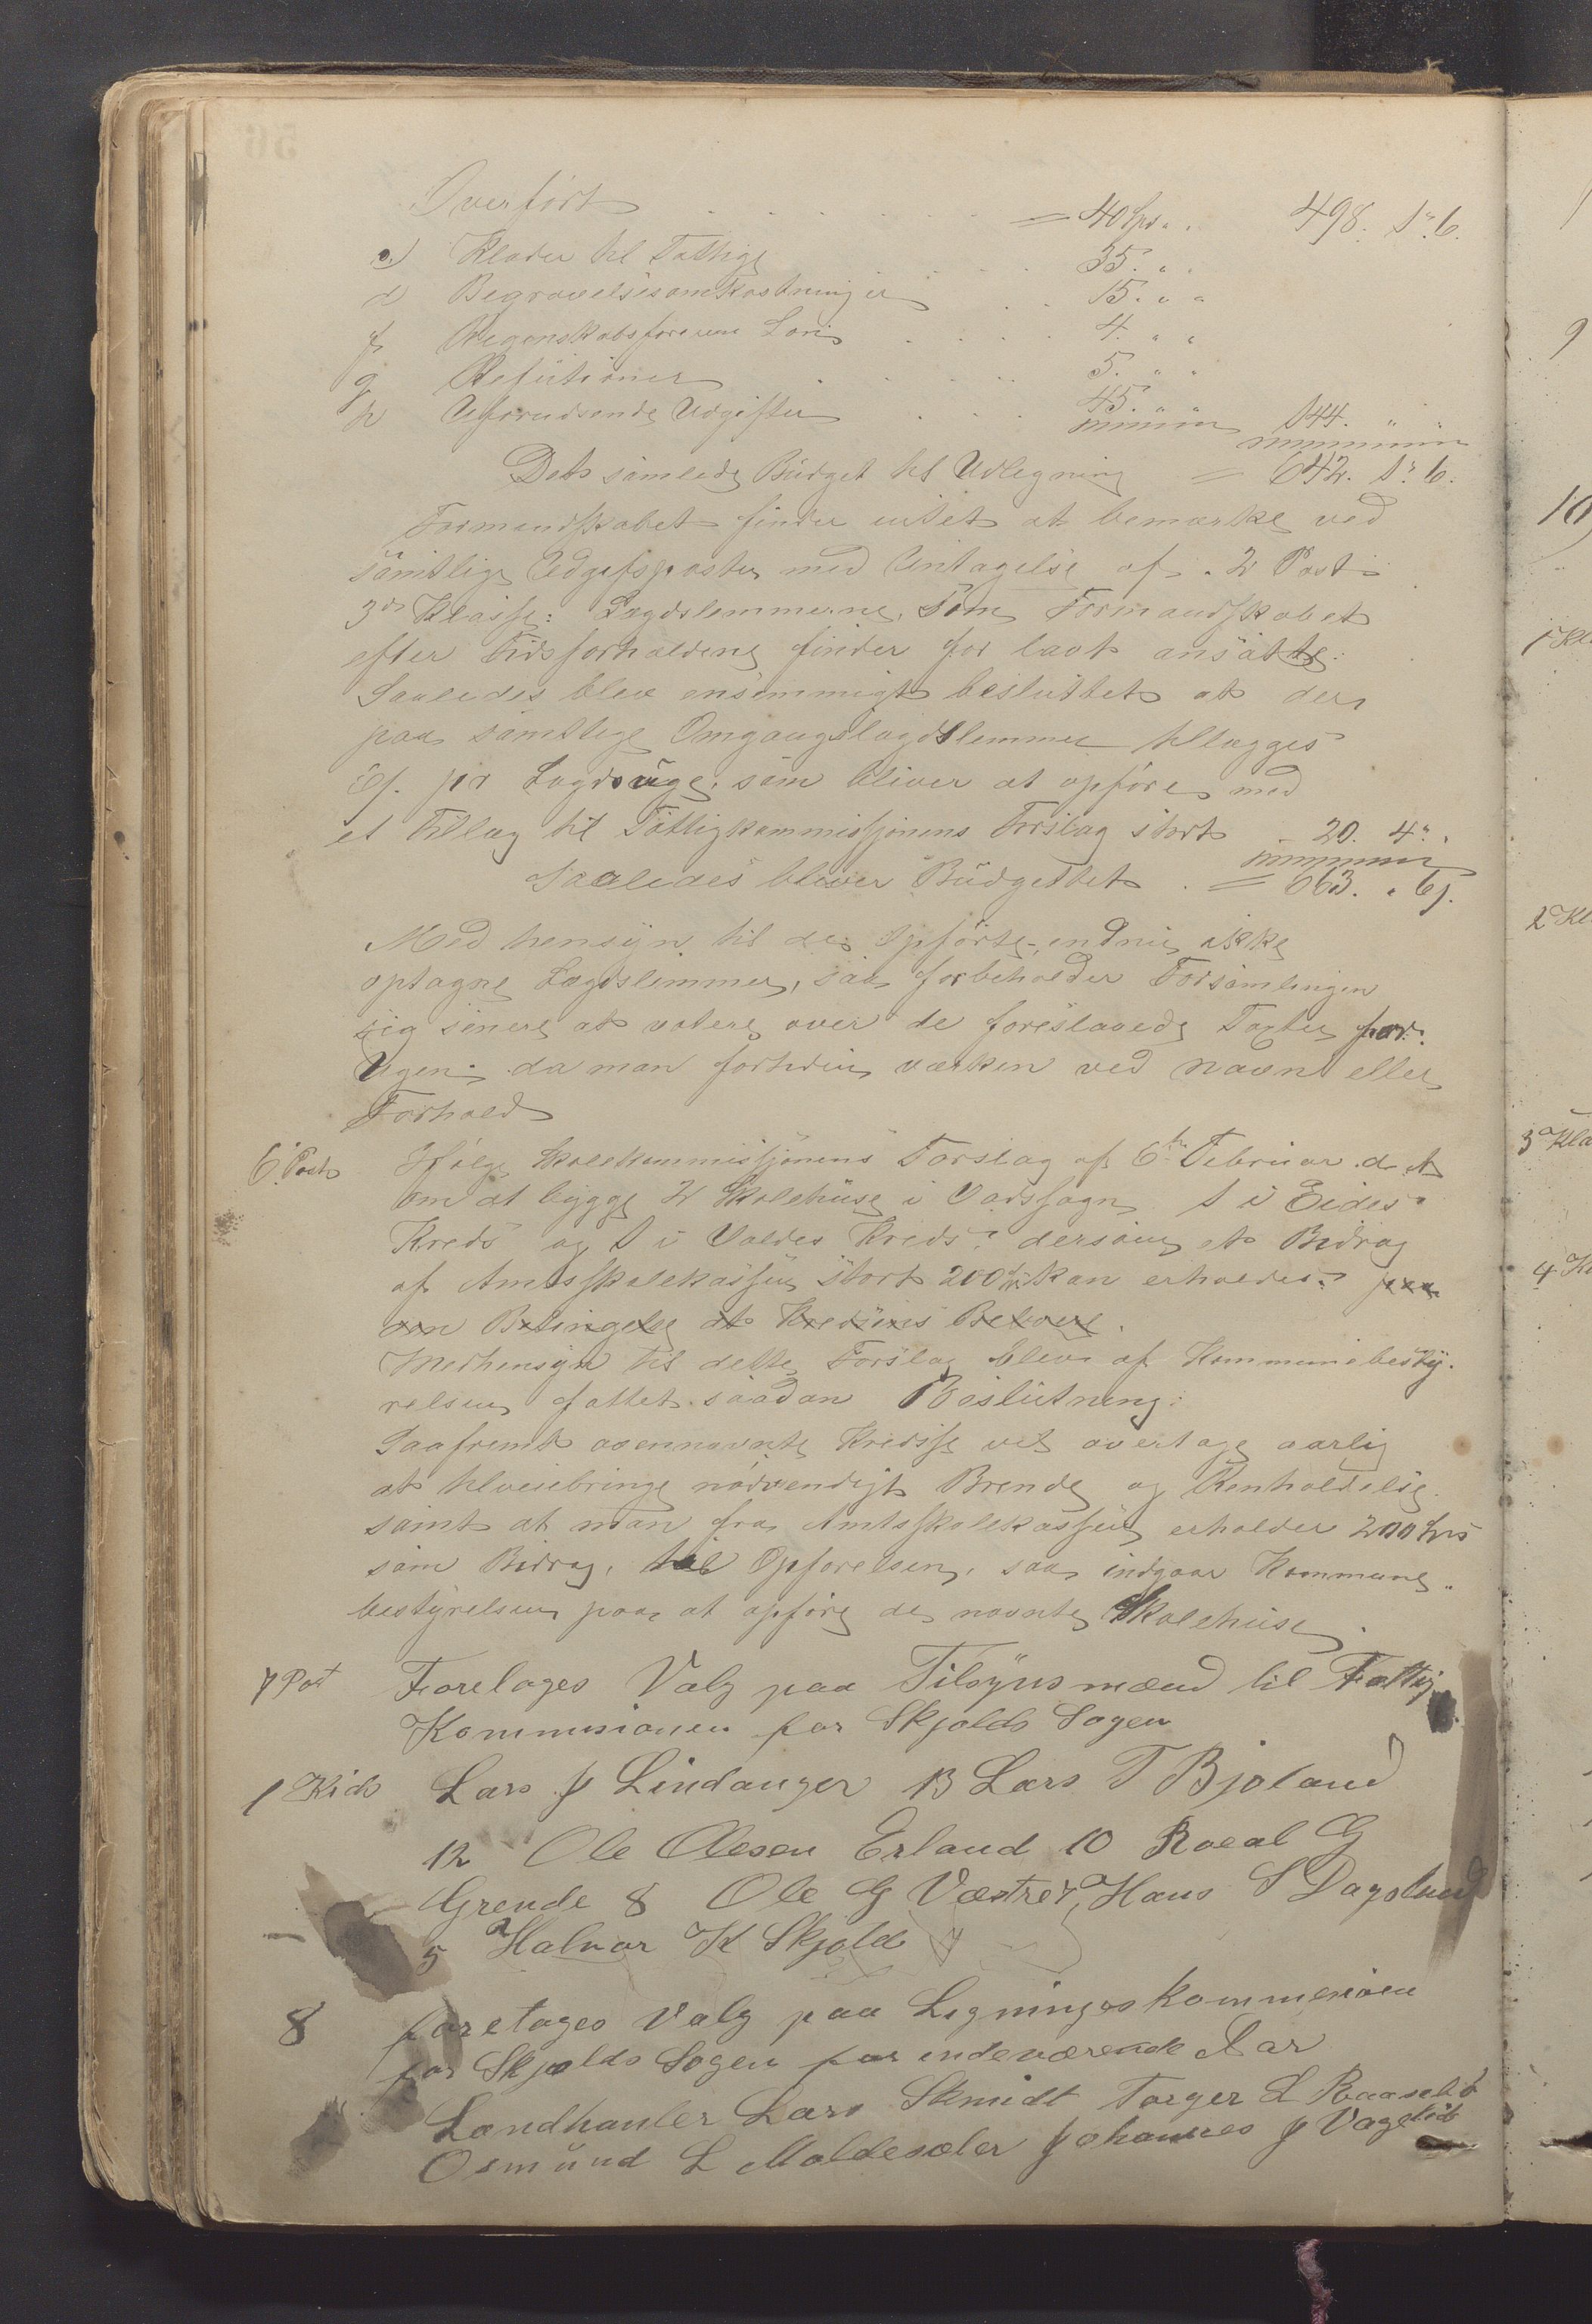 Overført . . . . . . . = 40 Spd. „ . 498. 1". 6.
e) Klæder til Fattige . . . 35. „ „
d Begravelsesomkostninger . . 15. „ „
f Regnskabsførerens Løn . . . . 4. „ „
g Refutioner . . . . 5. „ „
h Uforudseende Udgifter . . . 45. „ „ 144. „ „
Det samlede Budget til Udlegning = 642. 1". 6.
Formandskabet finder intet at bemærke ved
samtlige Udgifsposter med Untagelse af . 2 Post
3die Klasse: Lægdslemmerne, som Formandskabet
efter Tidsforholdene finder for lavt ansatte.
Saaledes blev ensemmigt besluttet at der
paa samtlige Omgangslægdslemmer tillægges
6 f. pr Lægdsuge, som bliver at opføre med
et Tillæg til Fattigkommissjonens Forslag stort - 20. 4" .
Saaledes bliver Budgettet . = 663. „ 6 f.
Med hensyn til de Opførte, endnu ikke
optagne Lægdslemmer, saa forbeholder Forsamlingen
sig senere at votere over de foreslaaede Taxter for
Ugen; da man fortiden værken ved Navn eller
Forhold
6. Post Ifølge Skolekommissjonens Forslag af 6te Februar d. A
om at bygge 2 Skolehuse i Vadssogn 1 i Eides
Kreds og 1 i Valdes Kreds: dersom et Bidrag
af Amtsskolekassen stort 200 Spd kan erholdes: paa
den Betingelse at Kredsens Beboere.
Medhensyn til dette Forslag blev af Kommunebesty-
relsen fattet saadan Beslutning:
Saafremt ovennævnte Kredse vil overtage aarlig
at tilveiebringe nødvendigt Brende og Renholdelse
samt at man fra Amtsskolekassen erholder 200 Spd
som Bidrag, til Opførelsen, saa indgaar Kommune-
bestyrelsen paa at opføre de nævnte Skolehuse.
7 Post Foretages Valg paa Tilsynsmænd til Fattig
Kommisionen for Skjolds Sogen
1 Kids Lars J Lindanger 13 Lars T Bjoland
12 Ole Olesen Erland 10 Roeal G
Grende 8 Ole G Væstre 7, Hans S Dagsland
5 Halvor K Skjold
8 foretages Valg paa Ligningskommenionen
for Skjolds Sogen for indeværende Aar
Landhanler Lars Smidt Torger L
Osmund L Maldesæler Johannes J Vagelid